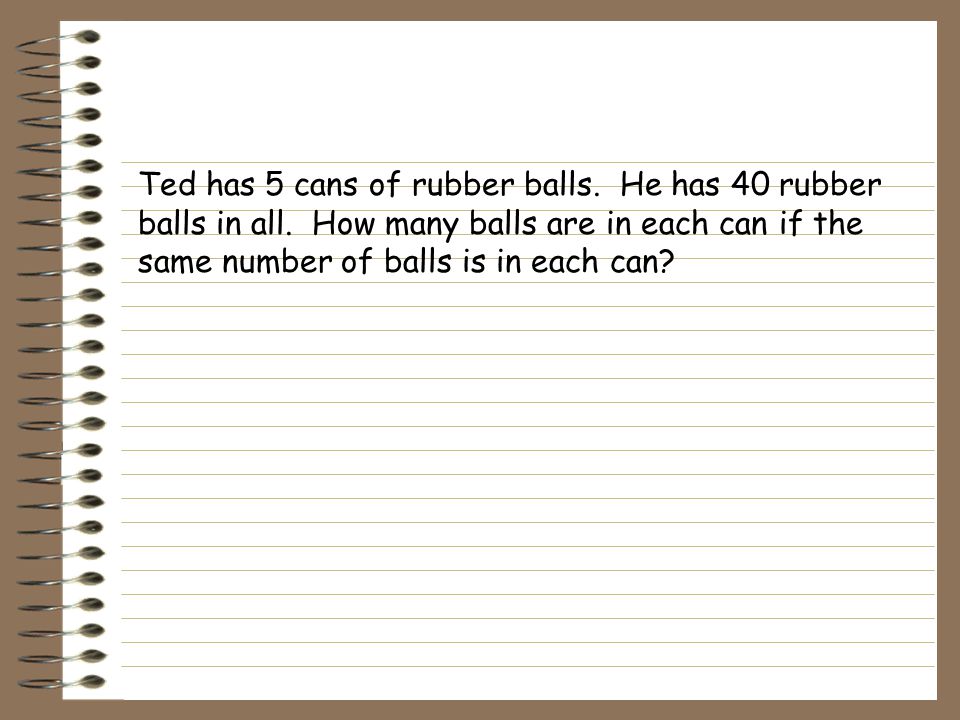 Ted has 5 cans of rubber balls.  He has 40 rubber
balls in all.  How many balls are in each can if the
same number of balls is in each can?